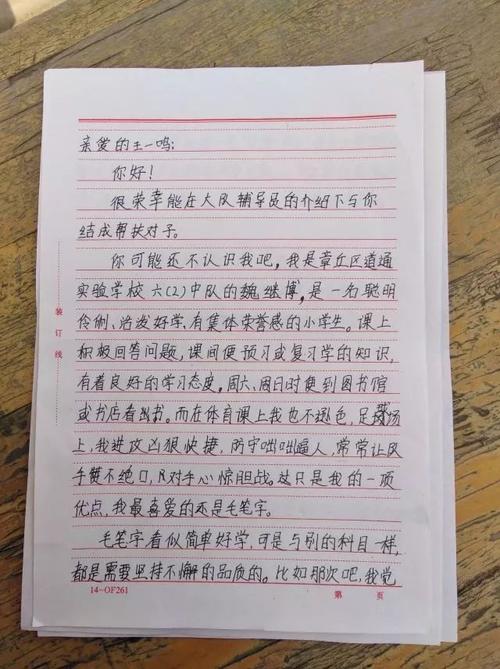 亲爱的王一鸣:
你好!
很荣幸能在大队辅导员的介绍下与你
结成帮扶对子。
你可能还不认识我吧,我是章丘区道通
实验学校六(2)中队的魏继博,是一名聪明
伶俐、活泼好学,有集体荣誉感的小学生。课上
积极回答问题,课间便预习或复习学的知识,
有着良好的学习态度。周六、周日时便到图书馆
或书店看书。而在体育课上我也不逊色,足球场
上,我进攻凶狠快捷,防守咄咄逼人,常常让队
手赞不绝口,对手心惊胆战。这只是我的一项
优点,我最喜爱的还是毛笔字。
毛笔字看似简单好学,可是与别的科目一样,
都是需要坚持不懈的品质的。比如那次吧,我觉
装订线
14-OF261
第 页